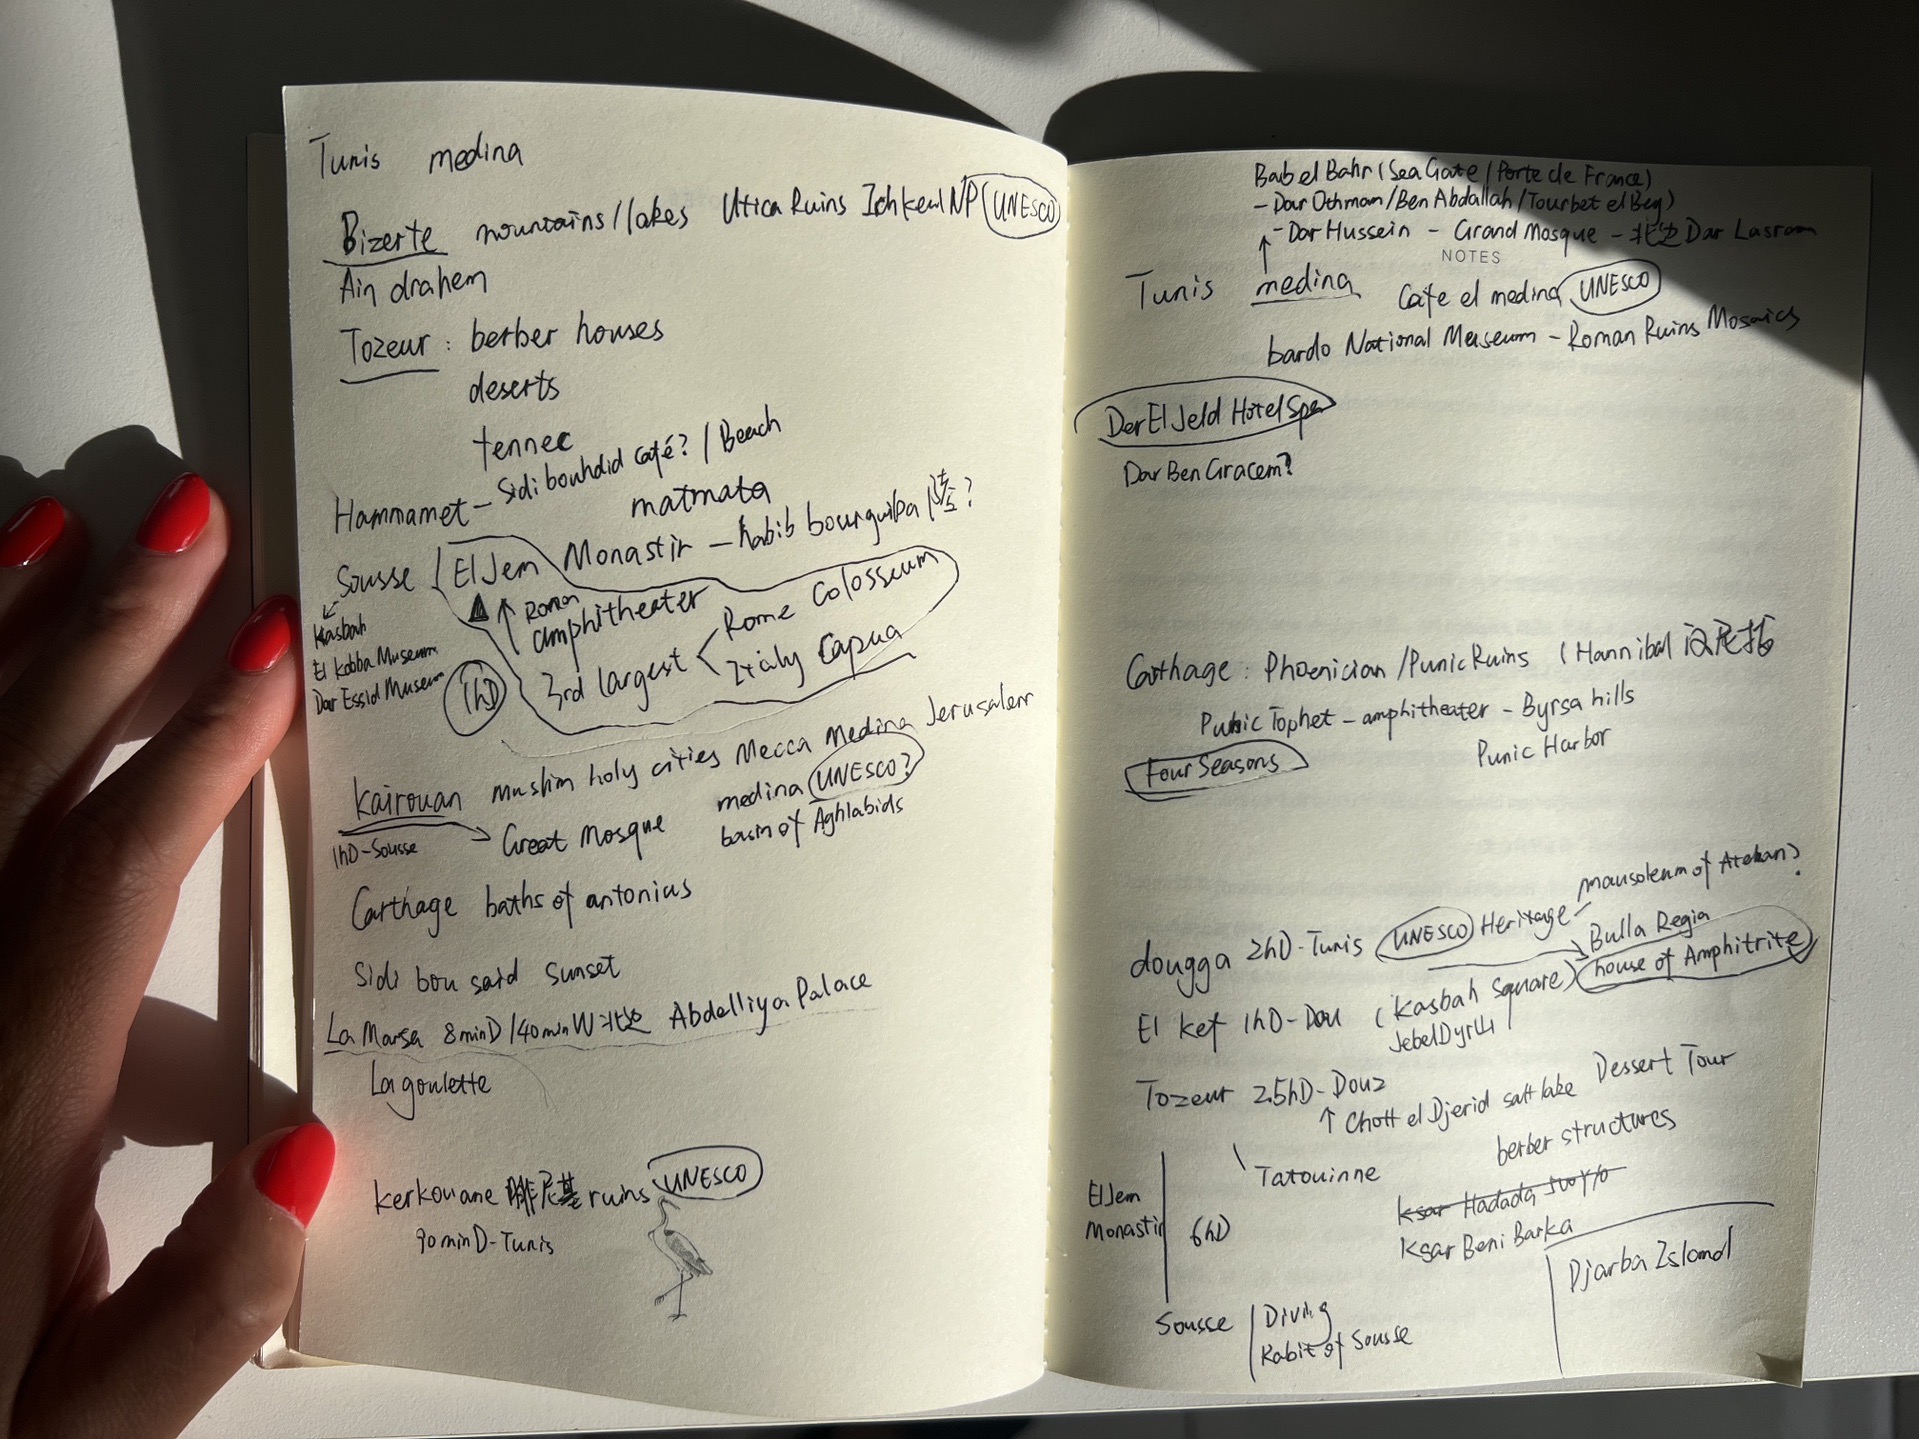 Tunis medina
Bizerte mountains/lakes Utica Ruins Ichkeul NP (UNESCO)
Ain drahem
Tozeur : berber houses
deserts
tennec
Hammamet - Sidi bouhdid café? / Beach
matmata
Sousse El Jem Monastir - habib bourguiba 陵?
Kasbah
El Kobba Museum
Dar Essid Museum
↑ Roman
amphitheater
1hD
3rd largest < Rome Colosseum
Italy Capua
Kairouan muslim holy cities Mecca Medina Jerusalem
1hD-Sousse
→ Great Mosque
medina UNESCO?
basin of Aghlabids
Carthage baths of antonius
Sidi bou said sunset
La Marsa 8minD/40minW Abdelliya Palace
La goulette
kerkouane 腓尼基 ruins UNESCO
90minD-Tunis
Bab el Bahr (Sea Gate / Porte de France)
- Dar Othman / Ben Abdallah / Tourbet el Bey)
- Dar Hussein - Grand Mosque - Dar Lasram
NOTES
Tunis medina Cafe el medina UNESCO
bardo National Museum - Roman Ruins Mosaics
Dar El Jeld Hotel Spa
Dar Ben Gracem?
Carthage : Phoenician / Punic Ruins (Hannibal 汉尼拔
Punic Tophet - amphitheater - Byrsa hills
Punic Harbor
Four Seasons
mausoleum of Ateban?
dougga 2hD-Tunis UNESCO Heritage -
Bulla Regia
house of Amphitrite
El kef 1hD-Dou (Kasbah square)
Jebel Dyr
Tozeur 2.5hD-Douz
↑ Chott el Djerid salt lake Dessert Tour
Tatouinne
berber structures
Ksar Hadada
Ksar Beni Barka
El Jem
Monastir
6hD
Djarba Island
Sousse
Diving
Rabit of Sousse